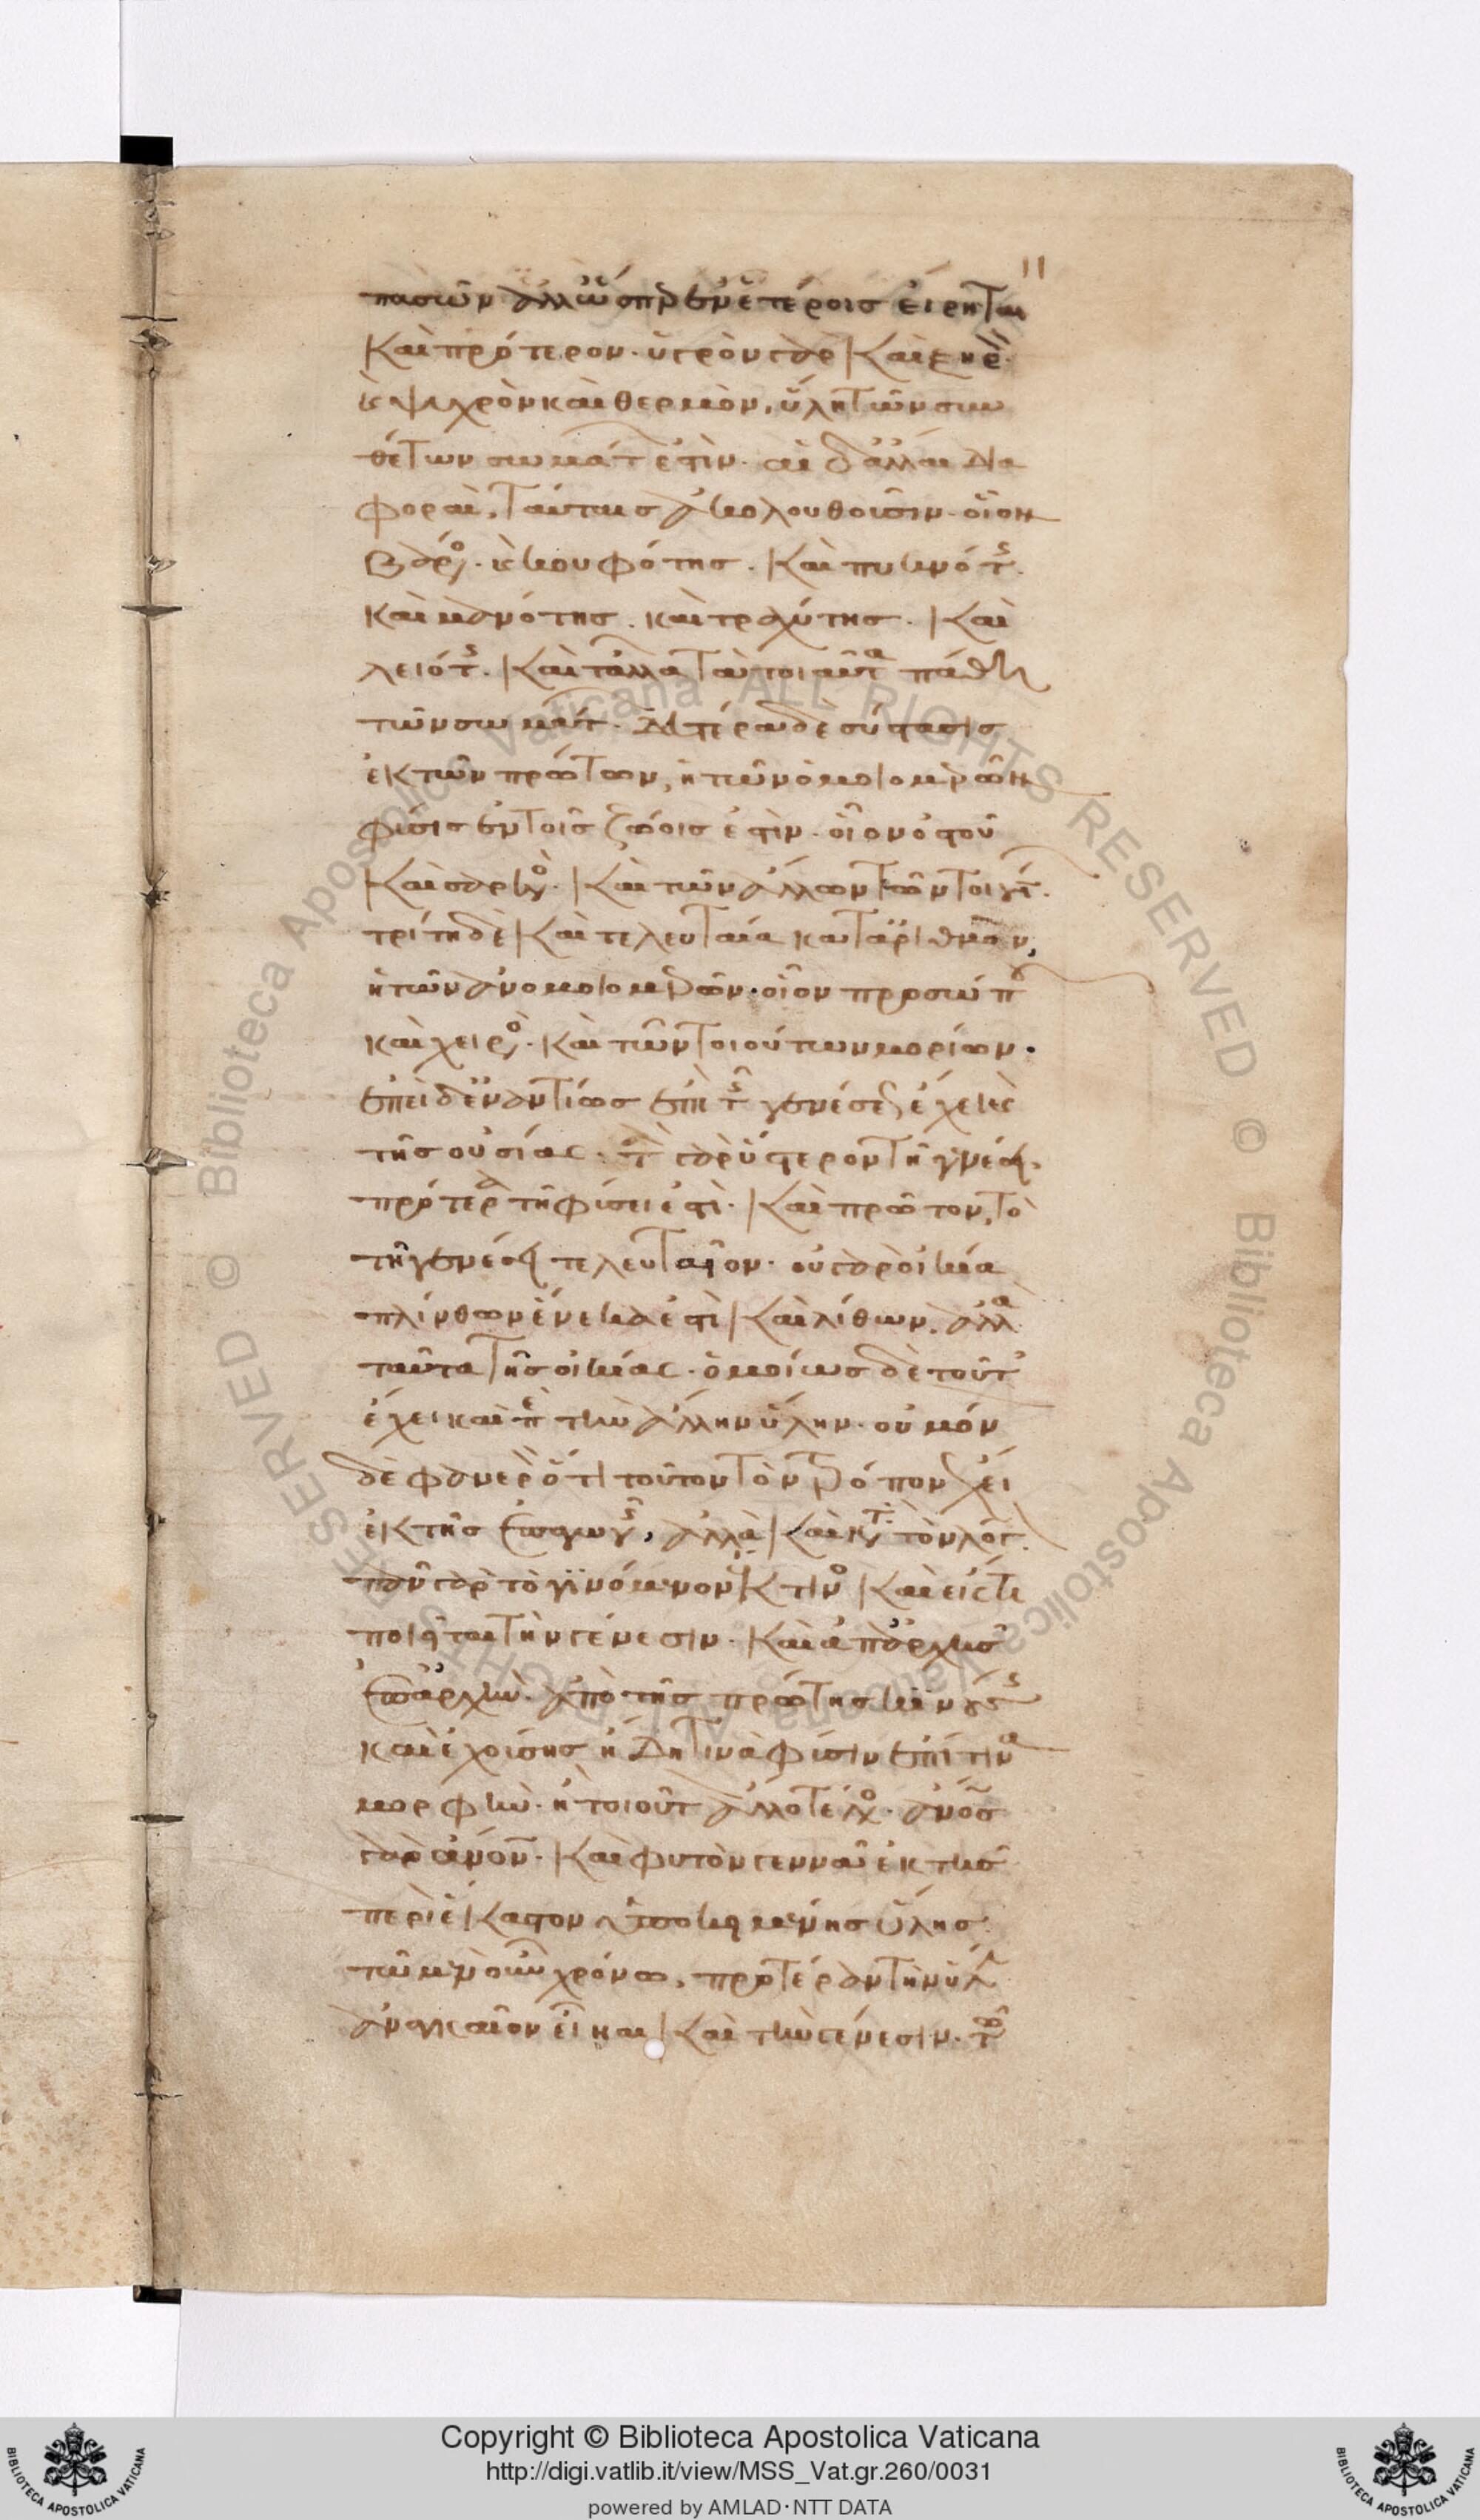 11
πασῶν ἀλλ' ὥσπερ ἐν ἑτέροις εἴρηται
καὶ πρότερον. ὑγρὸν γὰρ καὶ ξηρὸν
κ ψυχρὸν καὶ θερμὸν, ὕλη τῶν συν
θέτων σωμάτ ἐστὶν. αἱ δ' ἄλλαι δια
φοραὶ, ταύταις ἀκολουθοῦσιν. οἷον
βάρος. κ κουφότης. καὶ πυκνότης.
καὶ μανότης. καὶ τραχύτης. καὶ
λειότης. καὶ τἆλλα τὰ τοιαῦτα πάθη
τῶν σωμάτ. δευτέρα δὲ σύστασις
ἐκ τῶν πρώτων, ἡ τῶν ὁμοιομερῶν
φύσις ἐν τοῖς ζώοις ἐστὶν. οἷον ὀστοῦ
καὶ σαρκὸς. καὶ τῶν ἄλλων τῶν τοιούτ.
τρίτη δὲ καὶ τελευταία κατ' ἀριθμὸν,
ἡ τῶν ἀνομοιομερῶν. οἷον προσώπου
καὶ χειρὸς. καὶ τῶν τοιούτων μορίων.
ἐπεὶ δ' ἐναντίως ἐπὶ τῆς γενέσεως ἔχει κ
τῆς οὐσίας. τὰ γὰρ ὕστερον τῇ γενέσει,
πρότερα τὴν φύσιν ἐστὶ. καὶ πρῶτον, τὸ
τῇ γενέσει τελευταῖον. οὐ γὰρ οἰκία
πλίνθων ἕνεκά ἐστι καὶ λίθων. ἀλλὰ
ταῦτα τῆς οἰκίας. ὁμοίως δὲ τοῦτ'
ἔχει καὶ περὶ τὴν ἄλλην ὕλην. οὐ μόν
δὲ φανερὸν ὅτι τοῦτον τὸν τρόπον ἔχει
ἐκ τῆς ἐπαγωγῆς, ἀλλὰ καὶ κατὰ τὸν λόγ.
πᾶν γὰρ τὸ γινόμενον ἔκ τινος καὶ εἴς τι
ποιεῖται τὴν γένεσιν. καὶ ἀπ' ἀρχῆς
ἐπ' ἀρχὴν. ἀπὸ τῆς πρώτης κινούσης
καὶ ἐχούσης ἤδη τινὰ φύσιν ἐπί τινα
μορφὴν. ἢ τοιοῦτ ἄλλο τέλος. ἄνος
γὰρ ἄνον. καὶ φυτὸν γεννᾷ ἐκ τῆς
περὶ ἕκαστον ὑποκειμένης ὕλης.
τῶ μὲν οὖν χρόνω, προτέραν τὴν ὕλην
ἀναγκαῖον εἶναι καὶ τὴν γένεσιν. τῶ
Copyright © Biblioteca Apostolica Vaticana
http://digi.vatlib.it/view/MSS_Vat.gr.260/0031
powered by AMLAD·NTT DATA